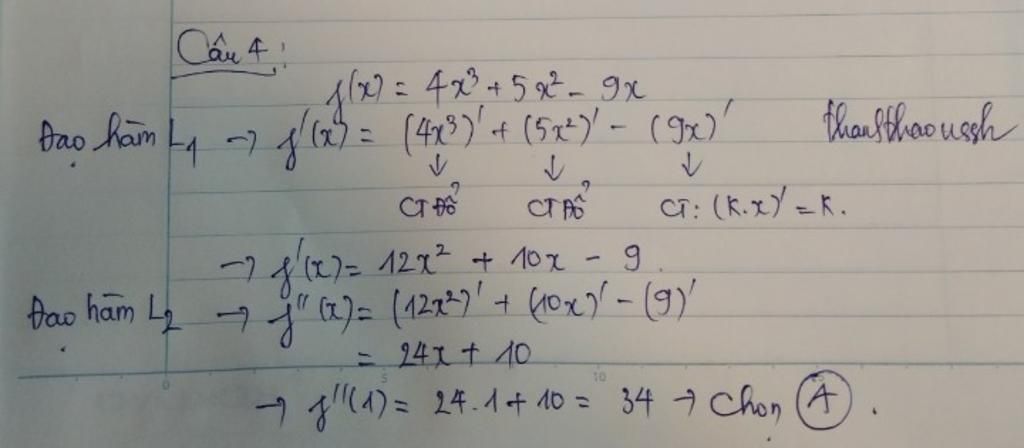 Câu 4:
f(x) = 4x³ + 5x² - 9x
Đạo hàm L₁ → f'(x) = (4x³)' + (5x²)' - (9x)'
↓ ↓ ↓
CT Đỏ? CT Đỏ? CT: (k.x)' = k.
→ f'(x) = 12x² + 10x - 9.
Đạo hàm L₂ → f''(x) = (12x²)' + (10x)' - (9)'
= 24x + 10
0 5 10
→ f''(1) = 24.1 + 10 = 34 → Chọn A.